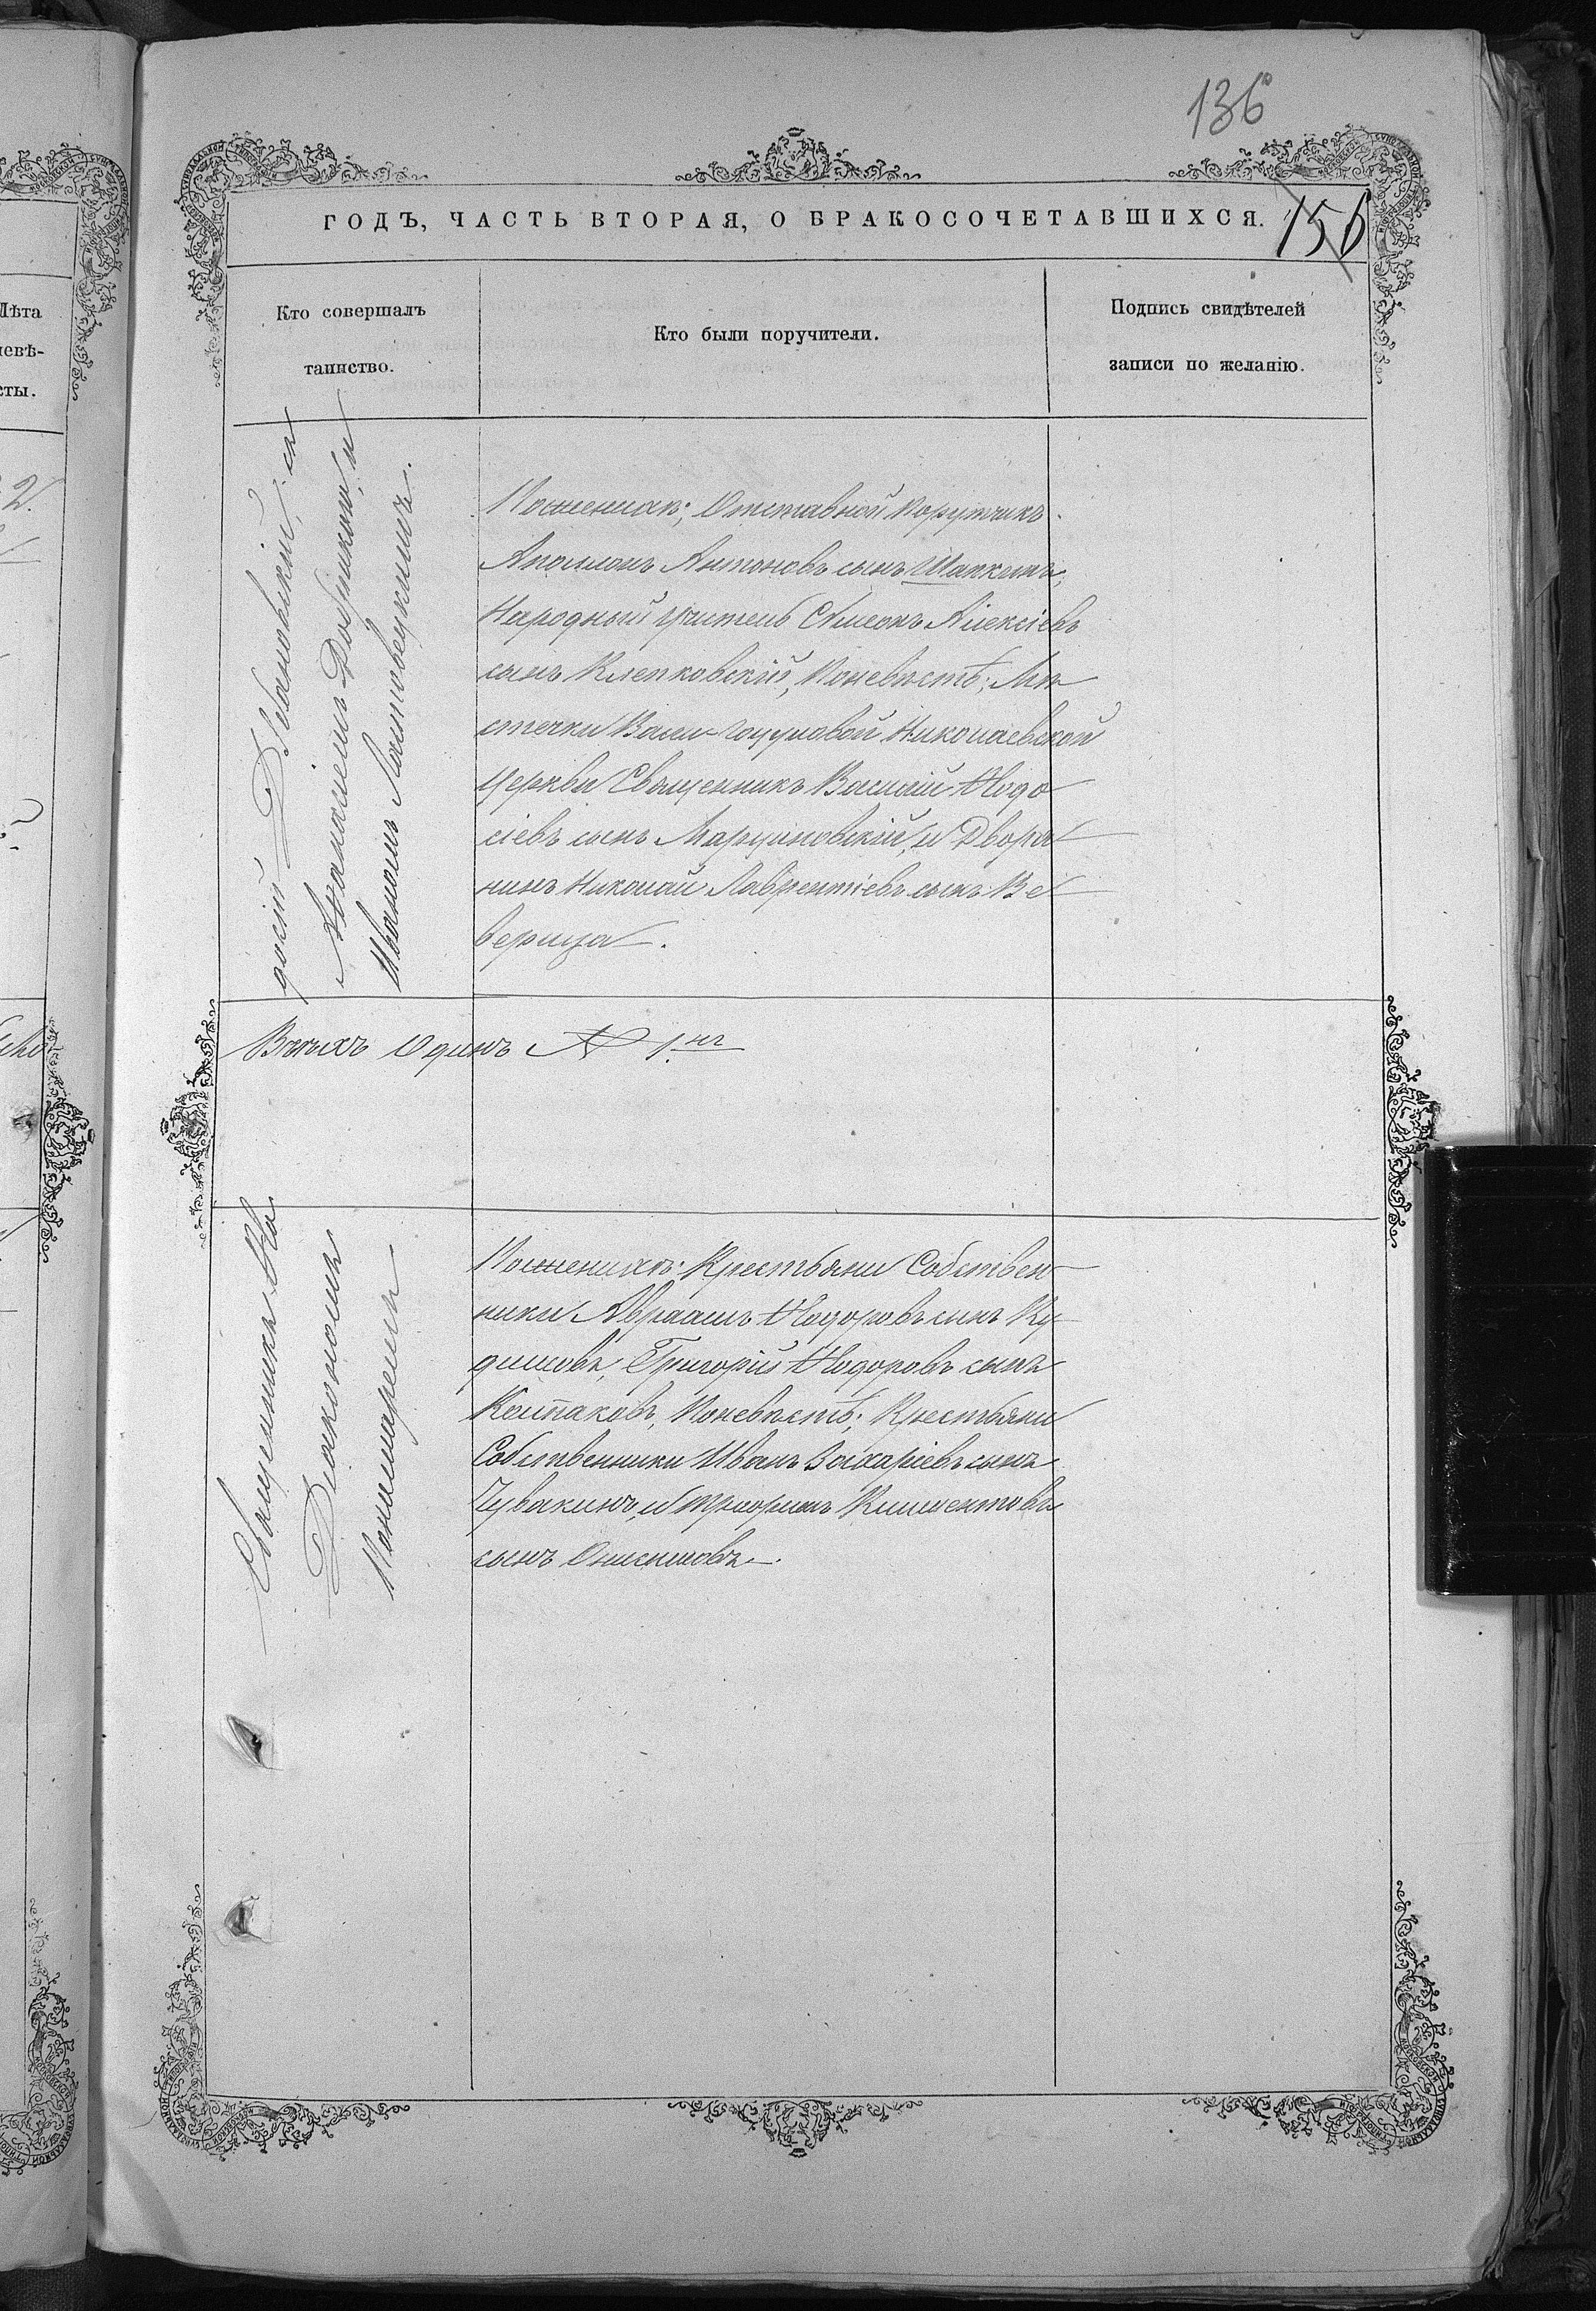 136
ГОДЪ, ЧАСТЬ ВТОРАЯ, О БРАКОСОЧЕТАВШИХСЯ.
156
Кто совершалъ
таинство.
Кто были поручители.
Подпись свидѣтелей
записи по желанію.
Лѣта
невѣ-
сты.
2.
Ивановскій, съ
Добрицкимъ, и
Иваномъ Лотовецкимъ.
Поженихѣ; Отставной Поручикъ
Аполлонъ Антоновъ сынъ Шапкинъ,
Народный Учитель Симеонъ Алексіевъ
сынъ Клепковскій, Поневѣстѣ; Мѣ
стечки Николаевской
Церкви Священникъ Василій Ѳеодо
сіевъ сынъ Марциновскій, и Дворя
нинъ Николай Лаврентіевъ сынъ Ве
верица.
Всѣхъ Одинъ № 1.й
Священникъ
Діакономъ
Пономаремъ
Поженихѣ: Крестьяни Собствен
ники Авраамъ Ѳеодоровъ сынъ Ку
димовъ, Григорій Ѳеодоровъ сынъ
Колпаковъ, Поневѣстѣ; Крестьяни
Собственники Иванъ Захаріевъ сынъ
Чувакинъ, и Климентовъ
сынъ Онисимовъ.